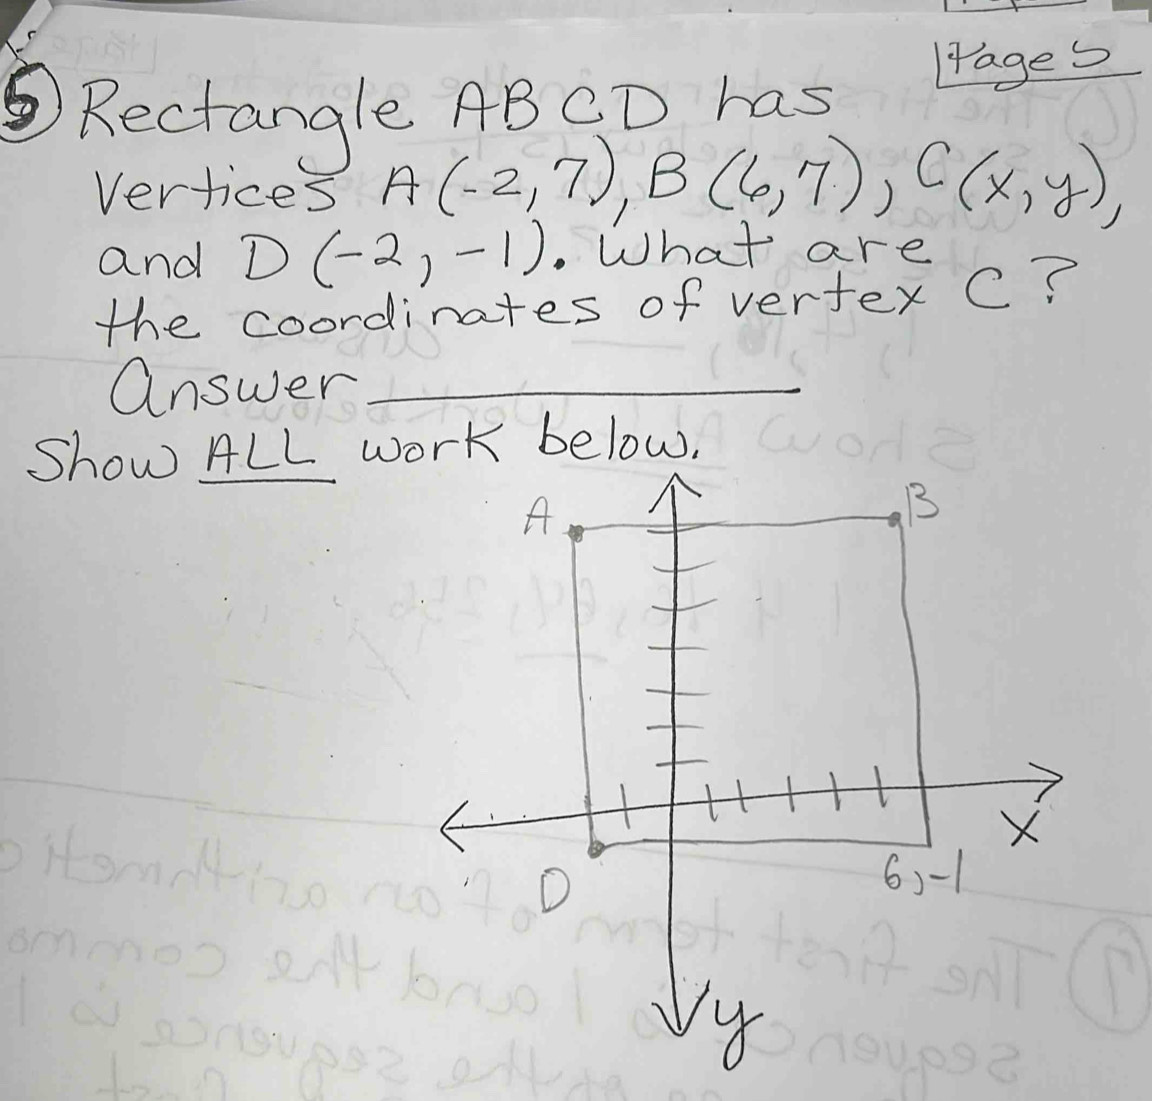 Page 5
5 Rectangle ABCD has
vertices A(-2,7), B(6,7), C(x,y),
and D(-2,-1). What are
the coordinates of vertex C?
Answer ____________
Show ALL work below.
A
B
X
D
6,-1
y